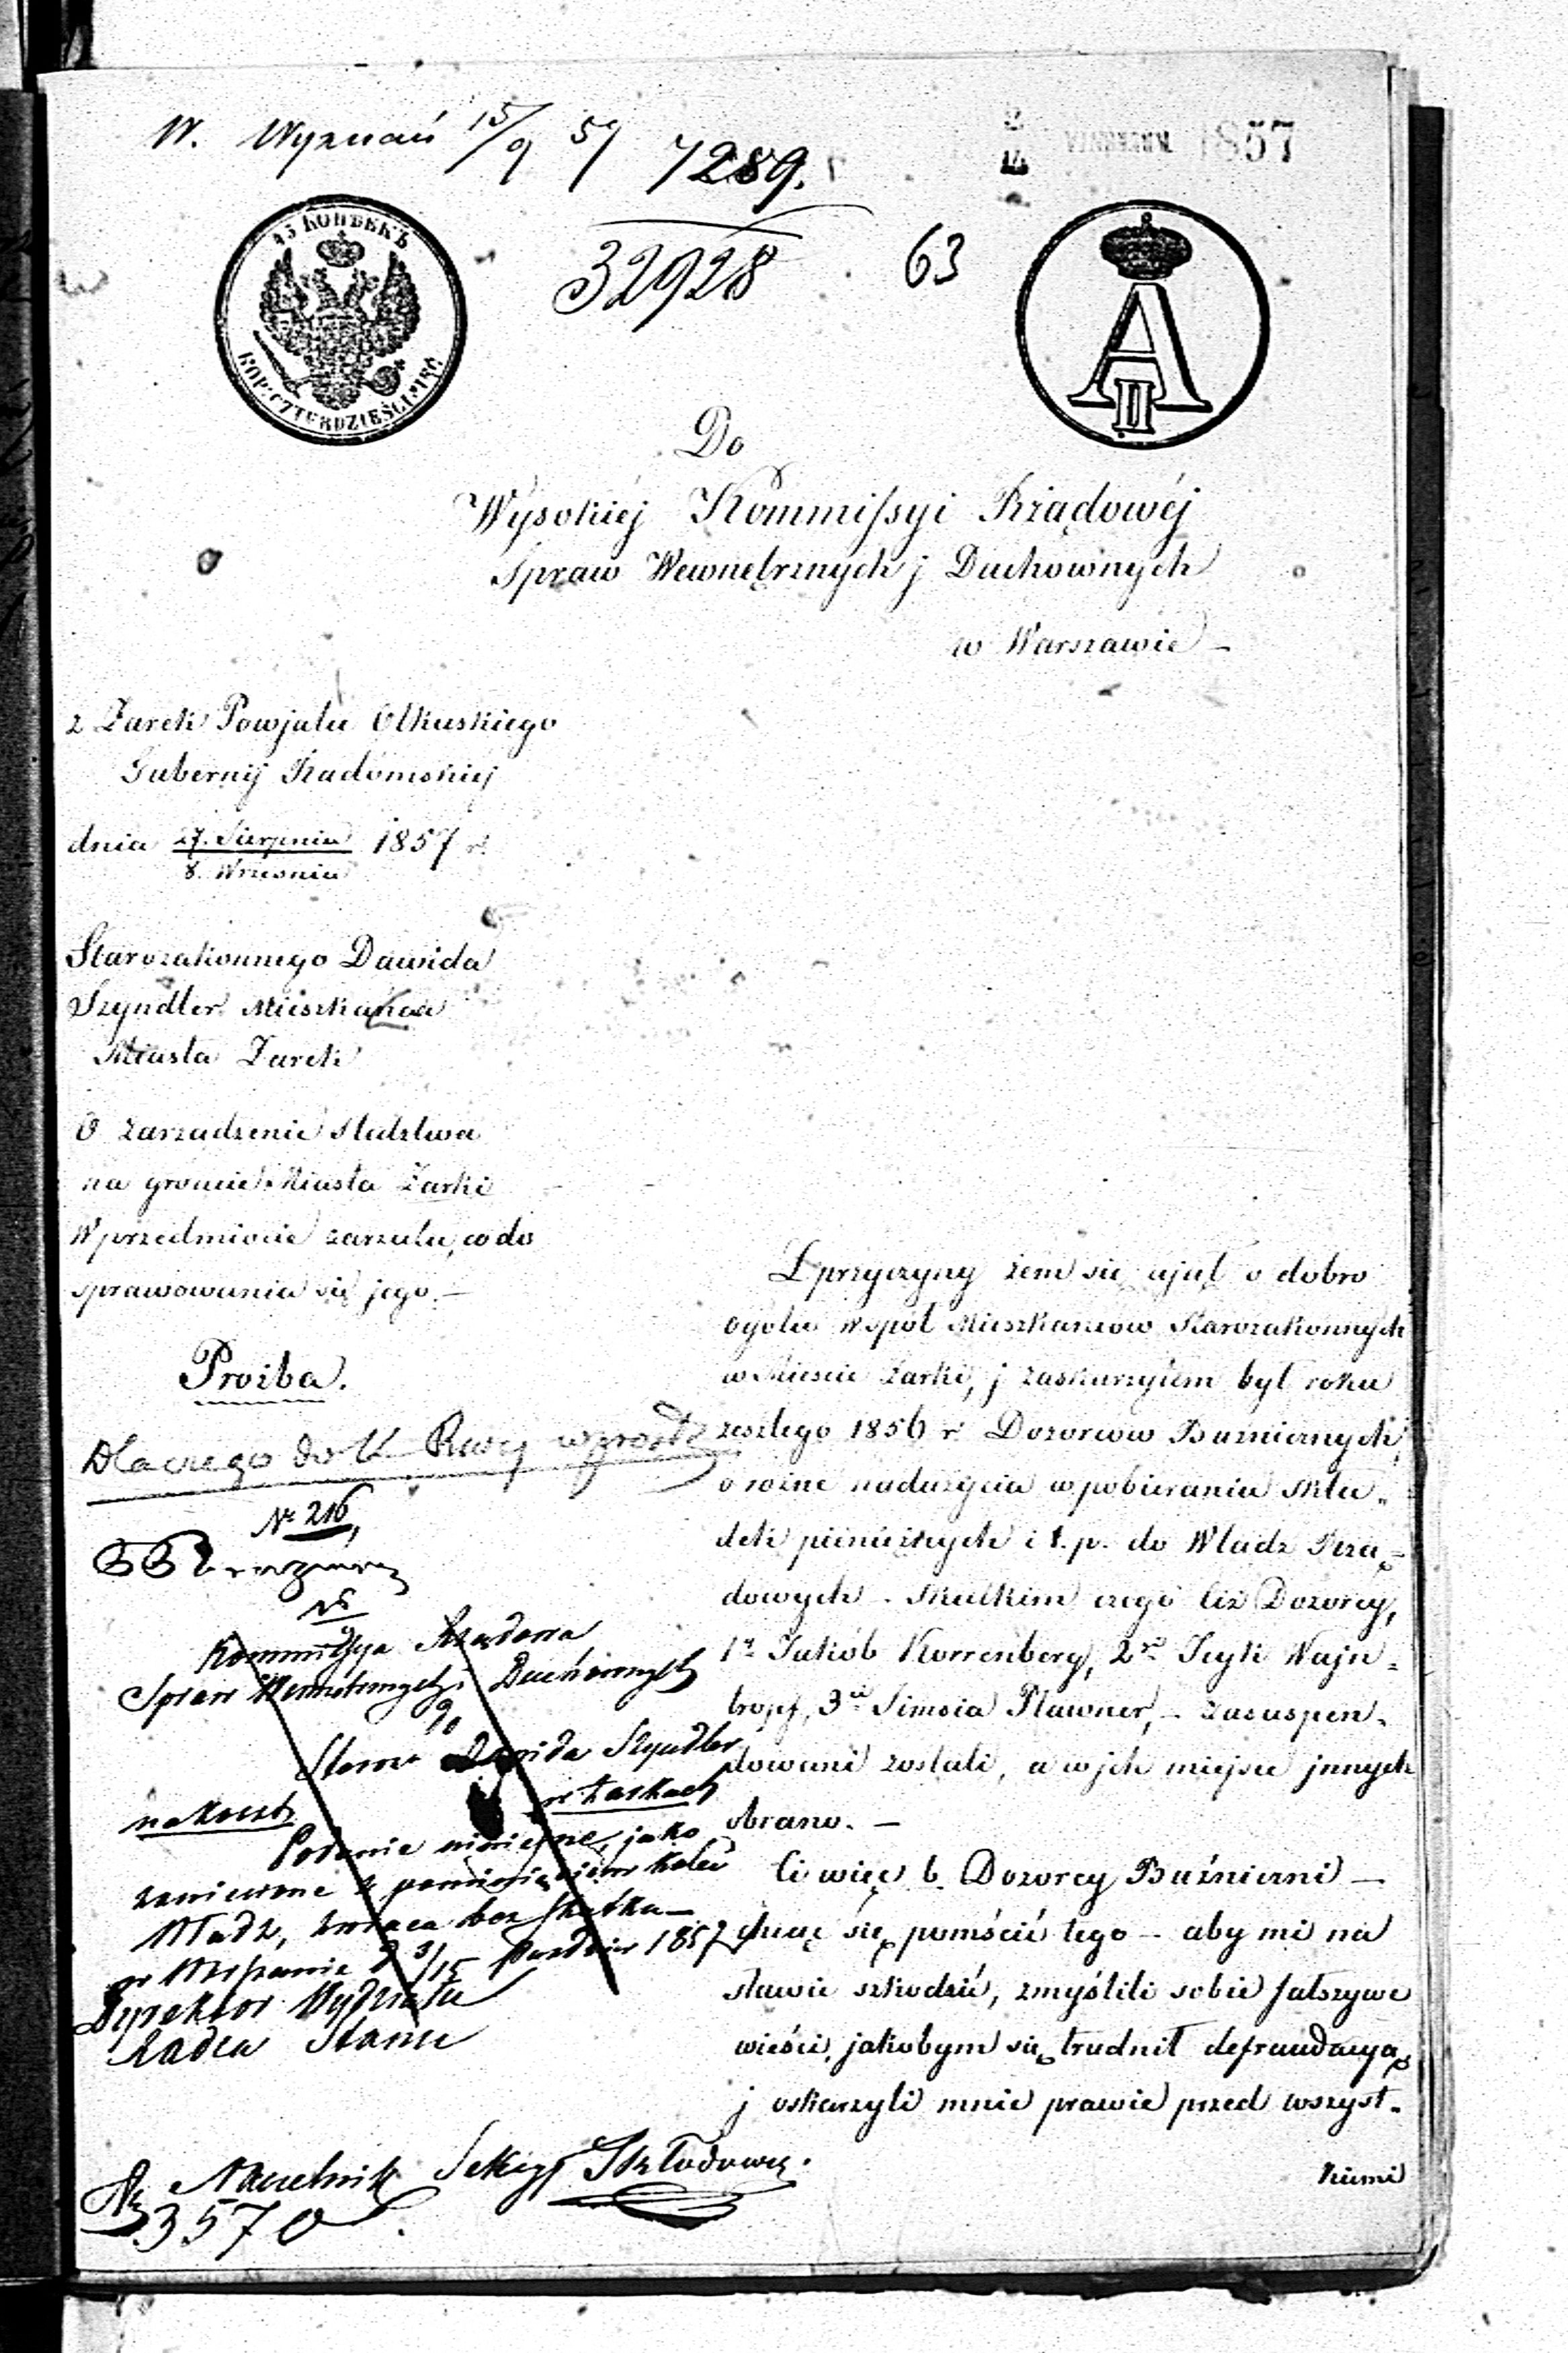 W. Wyznań 15/9 57
7289.
32928
63
1857
45 КОПѢЕКЪ
KOP: CZTERDZIEŚCI PIĘĆ
A II
Do
Wysokiéj Kommissyi Rządowéj
Spraw Wewnętrznych j Duchownych
w Warszawie –
z Żarek Powjatu Olkuskiego
Gubernij Radomskiej
dnia 27. Sierpnia 1857 r.
8. Września
Starozakonnego Dawida
Szyndler Mieszkańca
Miasta Żarek
O zarządzenie śledztwa
na groncie Miasta Żarki
W przedmiocie zarzutu, co do
sprawowania się jego. –
Prośba.
Dlaczego do K. Rząd wprost
Nº 216
Kommissya Rządowa
Spraw Wewnętrznych i Duchownych
Staroz Dawida Szyndler
w Żarkach
na koszt
Podanie niniejsze, jako
zaniesione z pominięciem kolei
Władz, zwraca bez skutku –
w Warszawie d 3/15 Paździer 1857
Dyrektor Wydziału
Radca Stanu
Naczelnik Sekcyi Skłodowski.
Nr 3570
Z przyczyny żem się ujął o dobro
ogółu współ Mieszkańców Starozakonnych
w Mieście Żarki, j zaskarzyłem był roku
zeszłego 1856 r Dozorców Bużnicznych,
o rożne nadużycia w pobieraniu skła-
dek pieniężnych i t. p. do Władz Rzą-
dowych – Skutkiem czego ciż Dozorcy,
1º Jakób Korrenberg, 2º Icyk Wajn-
tropf, 3º Simsia Pławner, – zasuspen-
dowani zostali, a w jch miejsce jnnych
obrano. –
Ci więc b. Dozorcy Buźniczni –
chcąc się pomścić tego – aby mi na
sławie szkodzić, zmyślili sobie fałszywe
wieści, jakobym się trudnił defraudacyą,
j oskarzyli mnie prawie przed wszyst-
kiemi